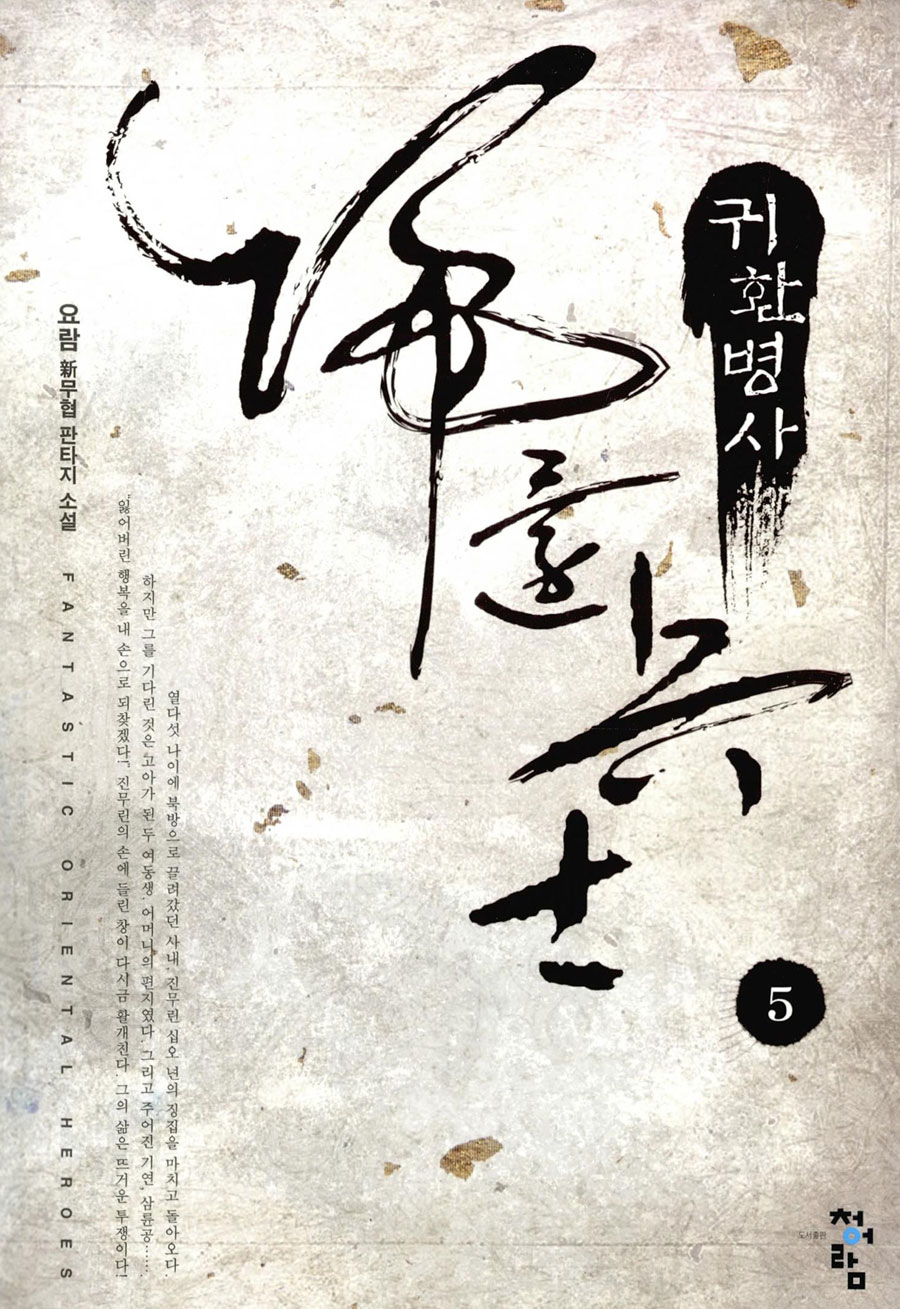 歸還兵士
귀환병사
5
요람 新무협 판타지 소설
FANTASTIC ORIENTAL HEROES
열다섯 나이에 북방으로 끌려갔던 사내, 진무린 십오 년의 징집을 마치고 돌아오다.
하지만 그를 기다린 것은 고아가 된 두 여동생. 어머니의 편지였다. 그리고 주어진 기연, 삼륜공……
"잃어버린 행복을 내 손으로 되찾겠다!" 진무린의 손에 들린 창이 다시금 활개친다. 그의 삶은 뜨거운 투쟁이다!
도서출판
청어람